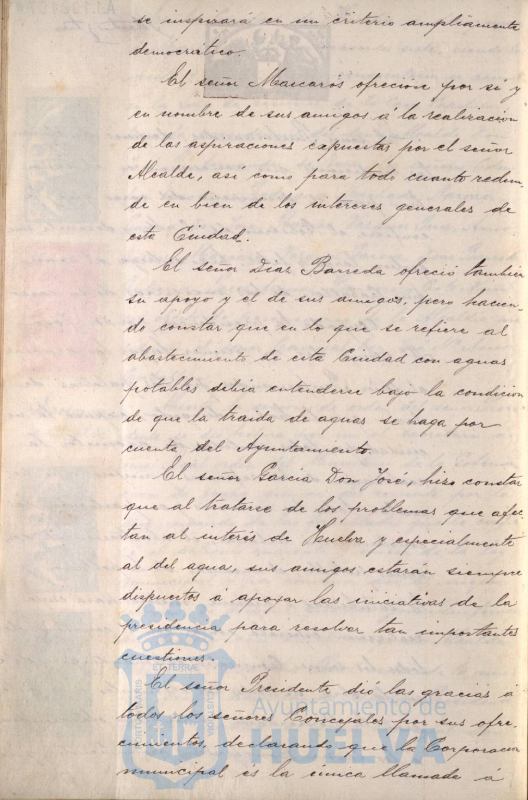 se inspirará en un criterio ampliamente
democratico.
El señor Mascarós ofreciose por sí y
en nombre de sus amigos á la realizacion
de las aspiraciones expuestas por el señor
Alcalde, así como para todo cuanto redun-
de en bien de los intereses generales de
esta Ciudad.
El señor Diaz Barreda ofreció tambien
su apoyo y el de sus amigos, pero hacien-
do constar que en lo que se refiere al
abastecimiento de esta Ciudad con aguas
potables debia entenderse bajo la condicion
de que la traida de aguas se haga por
cuenta del Ayuntamiento.
El señor Garcia Don José, hizo constar
que al tratarse de los problemas que afec-
tan al interés de Huelva y especialmente
al del agua, sus amigos estarán siempre
dispuestos á apoyar las iniciativas de la
presidencia para resolver tan importantes
cuestiones.
El señor Presidente dió las gracias á
todos los señores Concejales por sus ofre-
cimientos, declarando que la Corporacion
municipal es la única llamada á
Ayuntamiento de
HUELVA